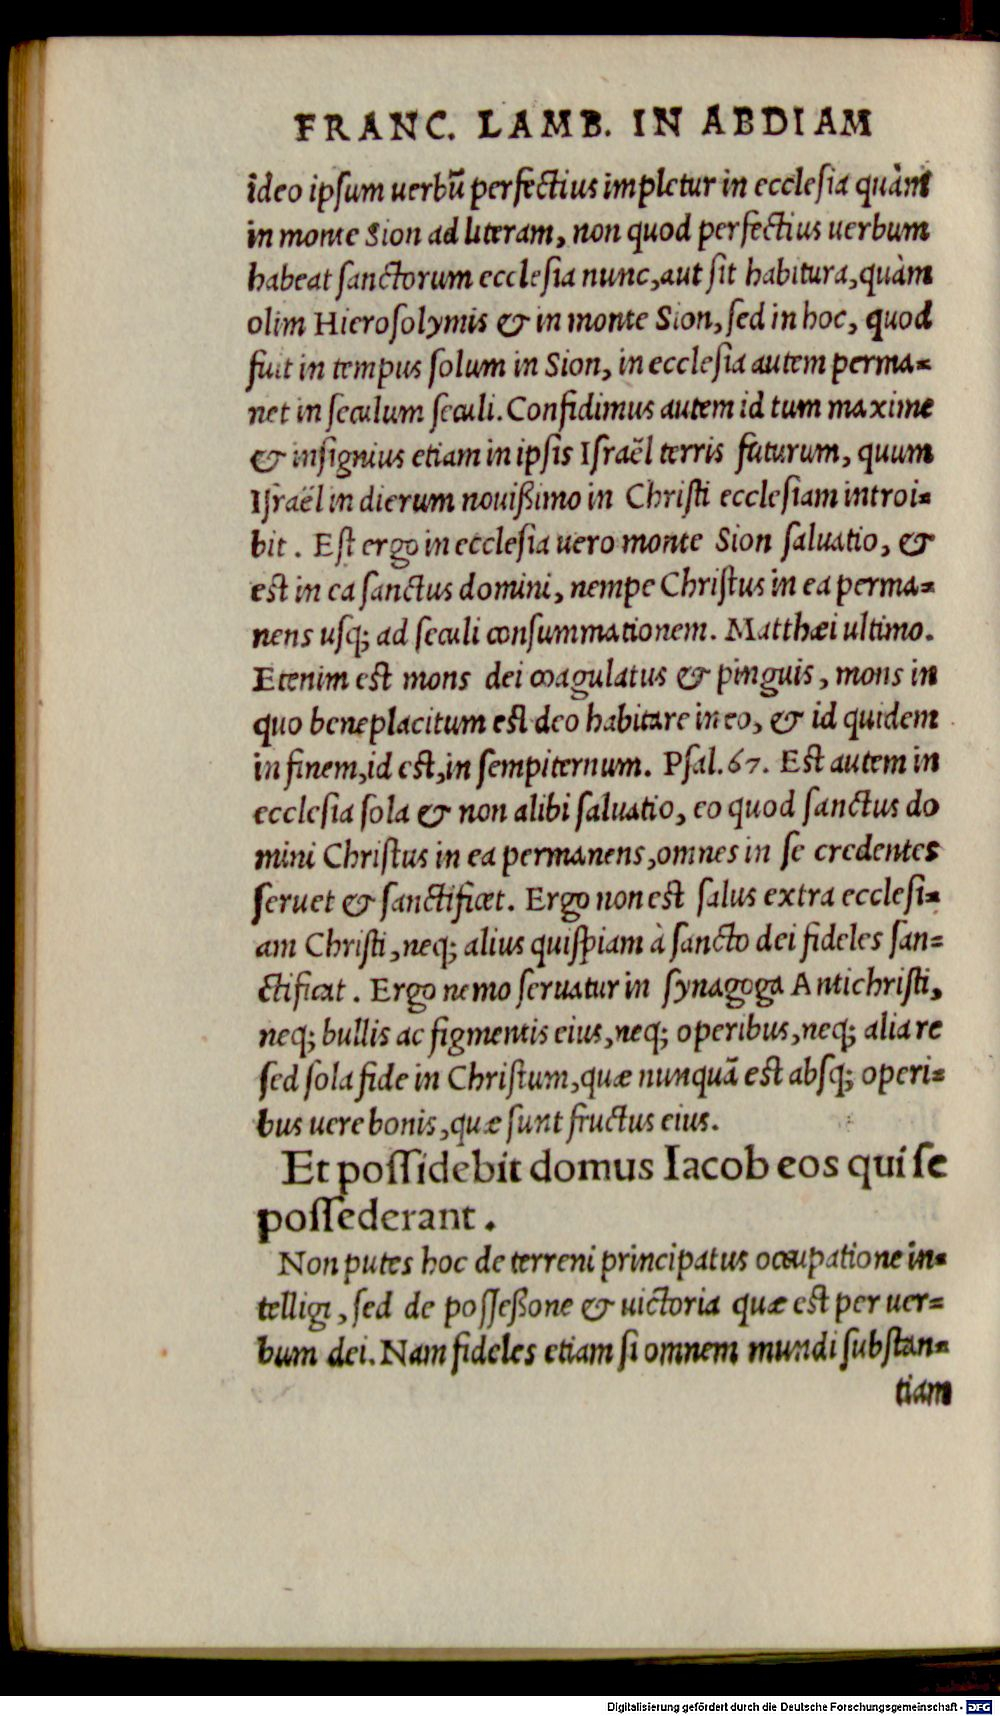 FRANC. LAMB. IN ABDIAM
ideo ipsum uerbũ perfectius impletur in ecclesia quàm
in monte Sion ad literam, non quod perfectius uerbum
habeat sanctorum ecclesia nunc, aut sit habitura, quàm
olim Hierosolymis & in monte Sion, sed in hoc, quod
fuit in tempus solum in Sion, in ecclesia autem perma=
net in seculum seculi. Confidimus autem id tum maxime
& insignius etiam in ipsis Israël terris futurum, quum
Israël in dierum nouißimo in Christi ecclesiam introi=
bit. Est ergo in ecclesia uero monte Sion saluatio, &
est in ea sanctus domini, nempe Christus in ea perma=
nens usq; ad seculi consummationem. Matthæi ultimo.
Etenim est mons dei coagulatus & pinguis, mons in
quo beneplacitum est deo habitare in eo, & id quidem
in finem, id est, in sempiternum. Psal. 67. Est autem in
ecclesia sola & non alibi saluatio, eo quod sanctus do
mini Christus in ea permanens, omnes in se credentes
seruet & sanctificet. Ergo non est salus extra ecclesi=
am Christi, neq; alius quispiam à sancto dei fideles san=
ctificat. Ergo nemo seruatur in synagoga Antichristi,
neq; bullis ac figmentis eius, neq; operibus, neq; alia re
sed sola fide in Christum, quæ nunquã est absq; operi=
bus uere bonis, quæ sunt fructus eius.
Et possidebit domus Iacob eos qui se
possederant.
Non putes hoc de terreni principatus occupatione in=
telligi, sed de posseßone & uictoria quæ est per uer=
bum dei. Nam fideles etiam si omnem mundi substan=
tiam
Digitalisierung gefördert durch die Deutsche Forschungsgemeinschaft - DFG